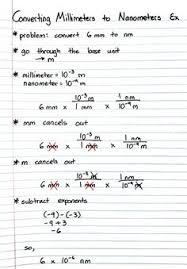 Converting Millimeters to Nanometers Ex
* problem: convert 6 mm to nm
* go through the base unit
→ m
* millimeter = 10⁻³ m
nanometer = 10⁻⁹ m
6 mm x 10⁻³ m / 1 mm x 1 nm / 10⁻⁹ m
* mm cancels out
6 mm x 10⁻³ m / 1 mm x 1 nm / 10⁻⁹ m
* m cancels out
6 mm x 10⁻³ m / 1 mm x 1 nm / 10⁻⁹ m
* subtract exponents
(-9) - (-3)
-9 + 3
-6
so,
6 x 10⁻⁶ nm